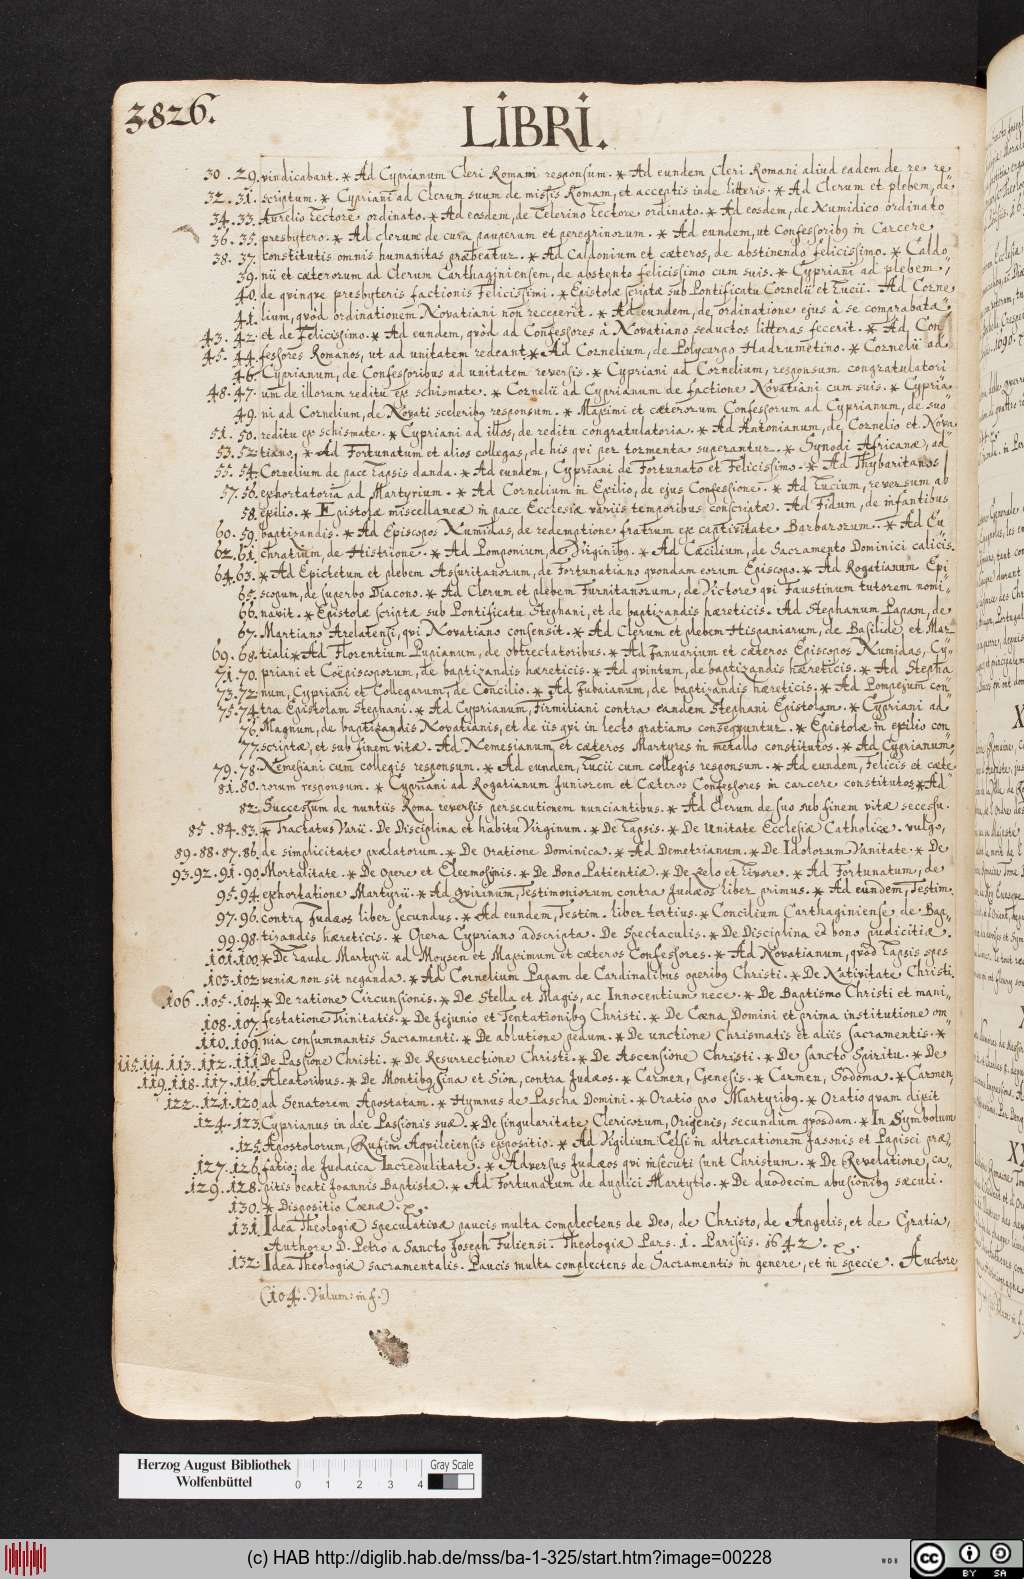 3826.
LIBRI.
30. 29. vindicabant. * Ad Cyprianum Cleri Romani responsum. * Ad eundem Cleri Romani aliud eadem de re re,,
32. 31. scriptum. * Cypriani ad Clerum suum de missis Romam, et acceptis inde litteris. * Ad Clerum et plebem, de,,
34. 33. Aurelio Lectore ordinato. * Ad eosdem, de Celerino Lectore ordinato. * Ad eosdem, de Numidico ordinato
36. 35. presbytero. * Ad clerum de cura pauperum et peregrinorum. * Ad eundem, ut Confessorib9 in Carcere
38. 37. constitutis omnis humanitas præbeatur. * Ad Caldonium et cæteros, de abstinendo felicissimo. * Caldo,,
39. nii et cæterorum ad Clerum Carthaginiensem, de abstento felicissimo cum suis. * Cypriani ad plebem,
40. de qvinqve presbyteris factionis Felicissimi. * Epistolæ scriptæ sub Pontificatu Cornelii et Lucii. Ad Corne
41. lium, qvòd ordinationem Novatiani non receperit. * Ad eundem, de ordinatione ejus à se comprobata,,
43. 42. et de Felicissimo. * Ad eundem, qvòd ad Confessores à Novatiano seductos litteras fecerit. * Ad, Con,,
45. 44. fessores Romanos, ut ad unitatem redeant * Ad Cornelium, de Polycarpo Hadrumetino. * Cornelii ad
46. Cyprianum, de Confessoribus ad unitatem reversis. * Cypriani ad Cornelium, responsum congratulatori
48. 47. um de illorum reditu ex schismate. * Cornelii ad Cyprianum de factione Novatiani cum suis. * Cypria,,
49. ni ad Cornelium, de Novati scelerib9 responsum. * Maximi et cæterorum Confessorum ad Cyprianum, de suo,,
51. 50. reditu ex schismate. * Cypriani ad illos, de reditu congratulatoria. * Ad Antonianum, de Cornelio et Nova
53. 52. tiano, * Ad Fortunatum et alios collegas, de his qvi per tormenta superantur. * Synodi Africanæ, ad
55. 54. Cornelium de pace Lapsis danda. * Ad eundem, Cypriani de Fortunato et Felicissimo. * Ad Thybaritanos
57. 56. exhortatoria ad Martyrium. * Ad Cornelium in Exilio, de ejus Confessione. * Ad Lucium, reversum ab
58. exilio. * Epistolæ miscellaneæ in pace Ecclesiæ variis temporibus conscriptæ. Ad Fidum, de infantibus
60. 59. baptizandis. * Ad Episcopos Numidas, de redemptione fratrum ex captivitate Barbarorum. * Ad Eu
62. 61. chratium, de Histrione. * Ad Pomponium, de Virginib9. * Ad Cæcilium, de Sacramento Dominici calicis.
64. 63. * Ad Epictetum et plebem Assuritanorum, de Fortunatiano qvondam eorum Episcopo. * Ad Rogatianum Epi
65. scopum, de superbo Diacono. * Ad Clerum et plebem Furnitanorum, de Victore qvi Faustinum tutorem nomi,,
66. navit. * Epistolæ scriptæ sub Pontificatu Stephani, et de baptizandis hæreticis. Ad Stephanum Papam, de
67. Martiano Arelatensi, qvi Novatiano consensit. * Ad Clerum et plebem Hispaniarum, de Basilide et Mar,,
69. 68. tiali * Ad Florentium Pupianum, de obtrectatoribus. * Ad Januarium et cæteros Episcopos Numidas, Cy,,
71. 70. priani et Coëpiscoporum, de baptizandis hæreticis. * Ad qvintum, de baptizandis hæreticis. * Ad Stepha
73. 72. num, Cypriani et Collegarum, de Concilio. * Ad Jubaianum, de baptizandis hæreticis. * Ad Pompejum con,,
75. 74. tra Epistolam Stephani. * Ad Cyprianum, Firmiliani contra eandem Stephani Epistolam. * Cypriani ad
76. Magnum, de baptizandis Novatianis, et de iis qvi in lecto gratiam conseqvuntur. * Epistolæ in exilio con,,
77. scriptæ, et sub finem vitæ. Ad Nemesianum et cæteros Martyres in metallo constitutos. * Ad Cyprianum,
79. 78. Nemesiani cum collegis responsum. * Ad eundem, Lucii cum collegis responsum. * Ad eundem, Felicis et cæte
81. 80. rorum responsum. * Cypriani ad Rogatianum Juniorem et Cæteros Confessores in carcere constitutos * Ad
82. Successum de nuntiis Roma reversis persecutionem nunciantibus. * Ad Clerum de suo sub finem vitæ secessu.
85. 84. 83. * Tractatus Varii. De Disciplina et habitu Virginum. * De Lapsis. * De Unitate Ecclesiæ Catholicæ. vulgo,
89. 88. 87. 86. de simplicitate prælatorum. * De Oratione Dominica. * Ad Demetrianum. * De Idolorum Vanitate. * De
93. 92. 91. 90. Mortalitate. * De Opere et Eleemosynis. * De Bono Patientiæ. * De Zelo et Livore. * Ad Fortunatum, de
95. 94. exhortatione Martyrii. * Ad Qvirinum, Testimoniorum contra Judæos liber primus. * Ad eundem, Testim.
97. 96. contra Judæos liber secundus. * Ad eundem, Testim. liber tertius. * Concilium Carthaginiense de Bap,,
99. 98. tizandis hæreticis. * Opera Cypriano adscripta. De Spectaculis. * De Disciplina et bono pudicitiæ.
101. 100. * De Laude Martyrii ad Moysen et Maximum et cæteros Confessores. * Ad Novatianum, qvòd Lapsis spes
103. 102. veniæ non sit neganda. * Ad Cornelium Papam de Cardinalibus operib9 Christi. * De Nativitate Christi
106. 105. 104. * De ratione Circumsionis. * De Stella et Magis, ac Innocentium nece. * De Baptismo Christi et mani,,
108. 107. festatione Trinitatis. * De Jejunio et Tentationib9 Christi. * De Cœna Domini et prima institutione om,,
110. 109. nia consummantis Sacramenti. * De ablutione pedum. * De unctione Chrismatis et aliis Sacramentis. *
115. 114. 113. 112. 111. De Passione Christi. * De Resurrectione Christi. * De Ascensione Christi. * De Sancto Spiritu. * De
119. 118. 117. 116. Aleatoribus. * De Montib9 Sina et Sion, contra Judæos. * Carmen, Genesis. * Carmen, Sodoma. * Carmen
122. 121. 120. ad Senatorem Apostatam. * Hymnus de Pascha Domini. * Oratio pro Martyrib9. * Oratio qvam dixit
124. 123. Cyprianus in die Passionis suæ. * De singularitate Clericorum, Origenis, secundùm qvosdam. * In Symbolum
125. Apostolorum, Rufini Aqvileiensis expositio. * Ad Vigilium Celsi in altercationem Jasonis et Papisci præ,,
127. 126. fatio; de Judaica Incredulitate. * Adversus Judæos qvi insecuti sunt Christum. * De Revelatione, ca,,
129. 128. pitis beati Joannis Baptistæ. * Ad Fortunatum de duplici Martyrio. * De duodecim abusionib9 sæculi.
130. * Dispositio Cœnæ. p.
131. Idea Theologiæ speculativæ paucis multa complectens de Deo, de Christo, de Angelis, et de Gratia,
Authore D. Petro a Sancto Joseph Fuliensi. Theologiæ Pars. 1. Parisiis. 1642. p.
132. Idea Theologiæ sacramentalis. Paucis multa complectens de Sacramentis in genere, et in specie. Auctore
(104. Volum: in f.)
Herzog August Bibliothek
Wolfenbüttel
0 1 2 3 4
Gray Scale
(c) HAB http://diglib.hab.de/mss/ba-1-325/start.htm?image=00228
WDB
CC BY SA